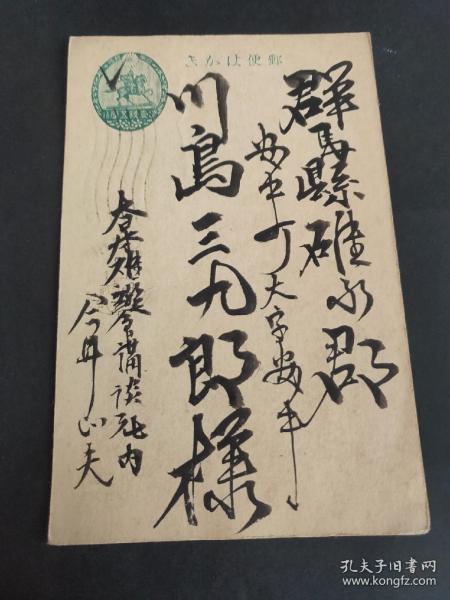 郵便はがき
群馬縣碓氷郡
安中町大字安中
川島三九郎様
講談社内
今井
孔夫子旧书网
www.kongfz.com